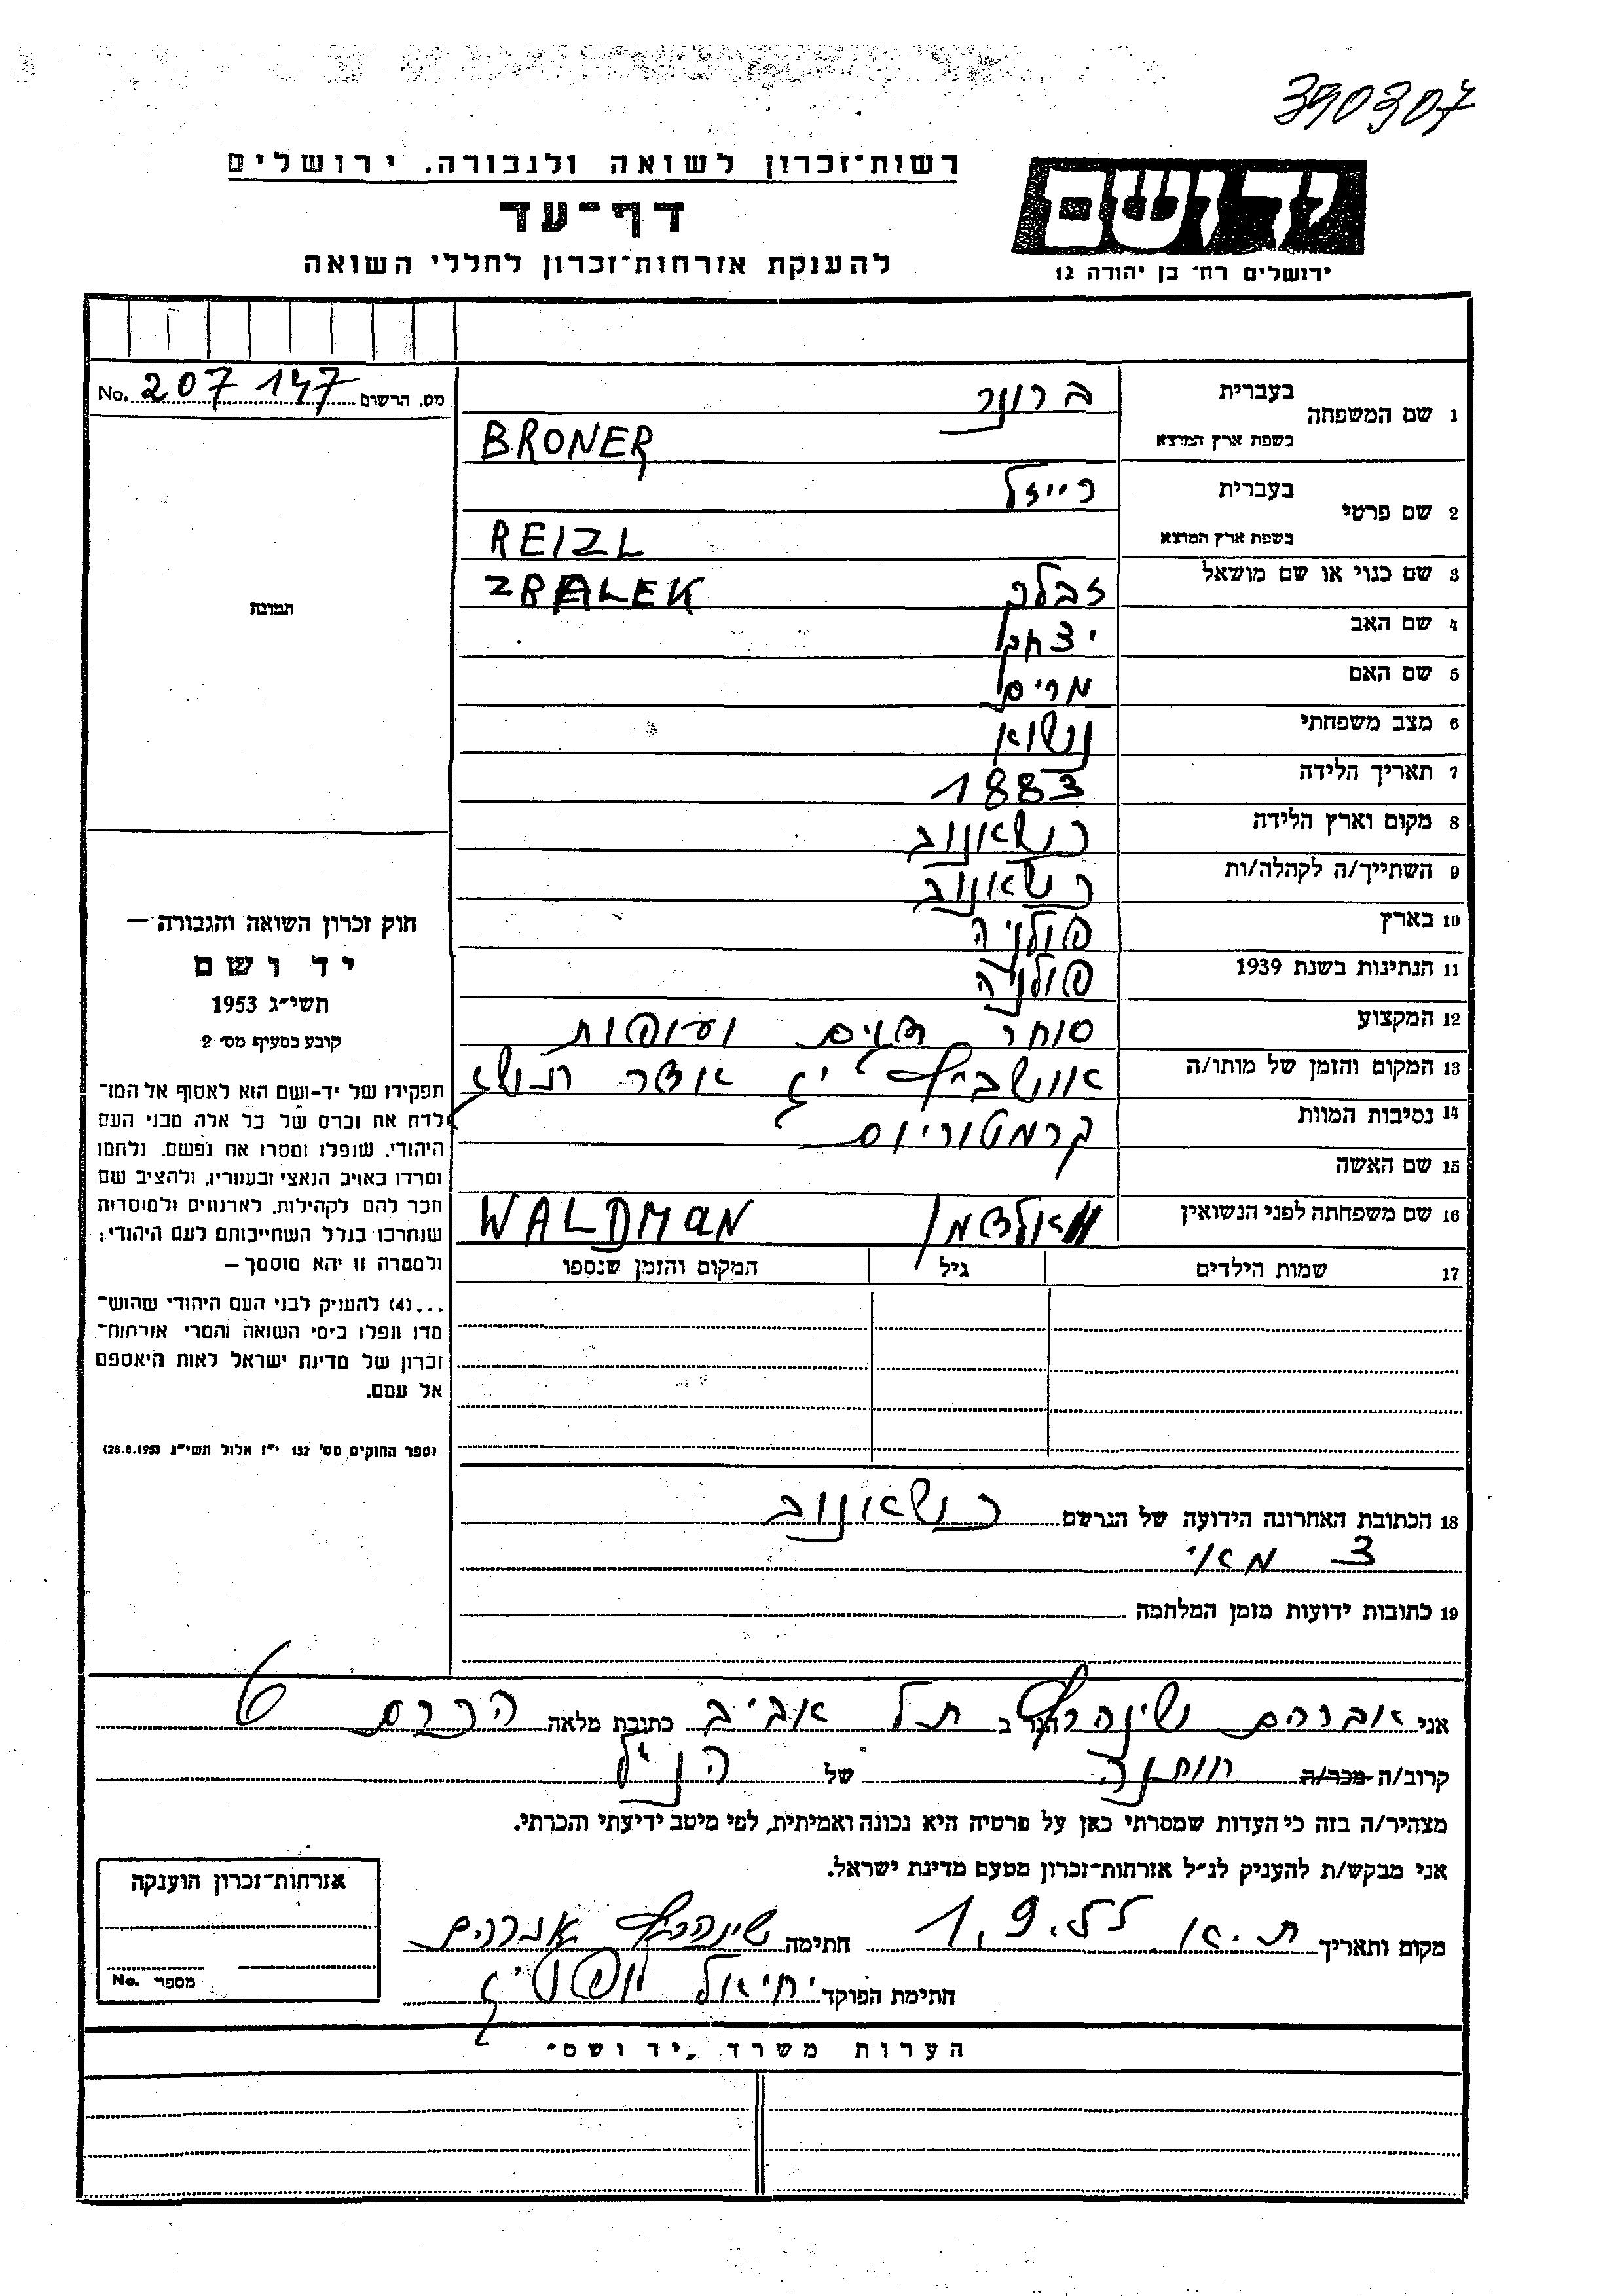 390307
רשות־זכרון לשואה ולגבורה. ירושלים
דף־עד
להענקת אזרחות־זכרון לחללי השואה
יד ושם
ירושלים רח׳ בן יהודה 12
מס. הרשום No. 207147
1 שם המשפחה בעברית ברונר
בשפת ארץ המוצא BRONER
2 שם פרטי בעברית רייזל
בשפת ארץ המוצא REIZL
3 שם כנוי או שם מושאל ZRALEK
4 שם האב יצחק
5 שם האם מרים
6 מצב משפחתי נשוא
7 תאריך הלידה 1883
8 מקום וארץ הלידה כשאנוב
9 השתייך/ה לקהלה/ות כשאנוב
10 בארץ פולניה
11 הנתינות בשנת 1939 פולניה
12 המקצוע סוחר דגים ועופות
13 המקום והזמן של מותו/ה
14 נסיבות המוות קרמטוריום
15 שם האשה
16 שם משפחתה לפני הנשואין וואלדמן WALDMAN
17 שמות הילדים גיל המקום והזמן שנספו
תמונה
חוק זכרון השואה והגבורה —
יד ושם
תשי״ג 1953
קובע בסעיף מס׳ 2
תפקידו של יד-ושם הוא לאסוף אל המו־
לדת את זכרם של כל אלה מבני העם
היהודי, שנפלו ומסרו את נפשם, נלחמו
ומרדו באויב הנאצי ובעוזריו, ולהציב שם
וזכר להם לקהילות, לארגונים ולמוסדות
שנחרבו בגלל השתייכותם לעם היהודי;
ולמטרה זו יהא מוסמך —
...(4) להעניק לבני העם היהודי שהוש־
מדו ונפלו בימי השואה והמרי אזרחות־
זכרון של מדינת ישראל לאות היאספם
אל עמם.
(ספר החוקים מס׳ 132 י״ז אלול תשי״ג 28.8.1953)
18 הכתובת האחרונה הידועה של הנרשם כשאנוב
3 מאי
19 כתובות ידועות מזמן המלחמה
אני אברהם שינהרץ הגר ב תל אביב כתובת מלאה הכרם 6
קרוב/ה מכר/ה חותנה של הנ״ל
מצהיר/ה בזה כי העדות שמסרתי כאן על פרטיה היא נכונה ואמיתית, לפי מיטב ידיעתי והכרתי.
אני מבקש/ת להעניק לנ״ל אזרחות־זכרון מטעם מדינת ישראל.
מקום ותאריך ת.א. 1.9.55 חתימה שינהרץ אברהם
חתימת הפוקד יחיאל
אזרחות־זכרון הוענקה
מספר No.
הערות משרד „יד ושם״